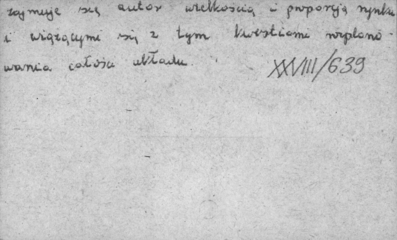 zajmuje się autor wielkością i proporcją rynku
i wiążącymi się z tym kwestiami rozplano-
wania całości układu.
XXVIII/639